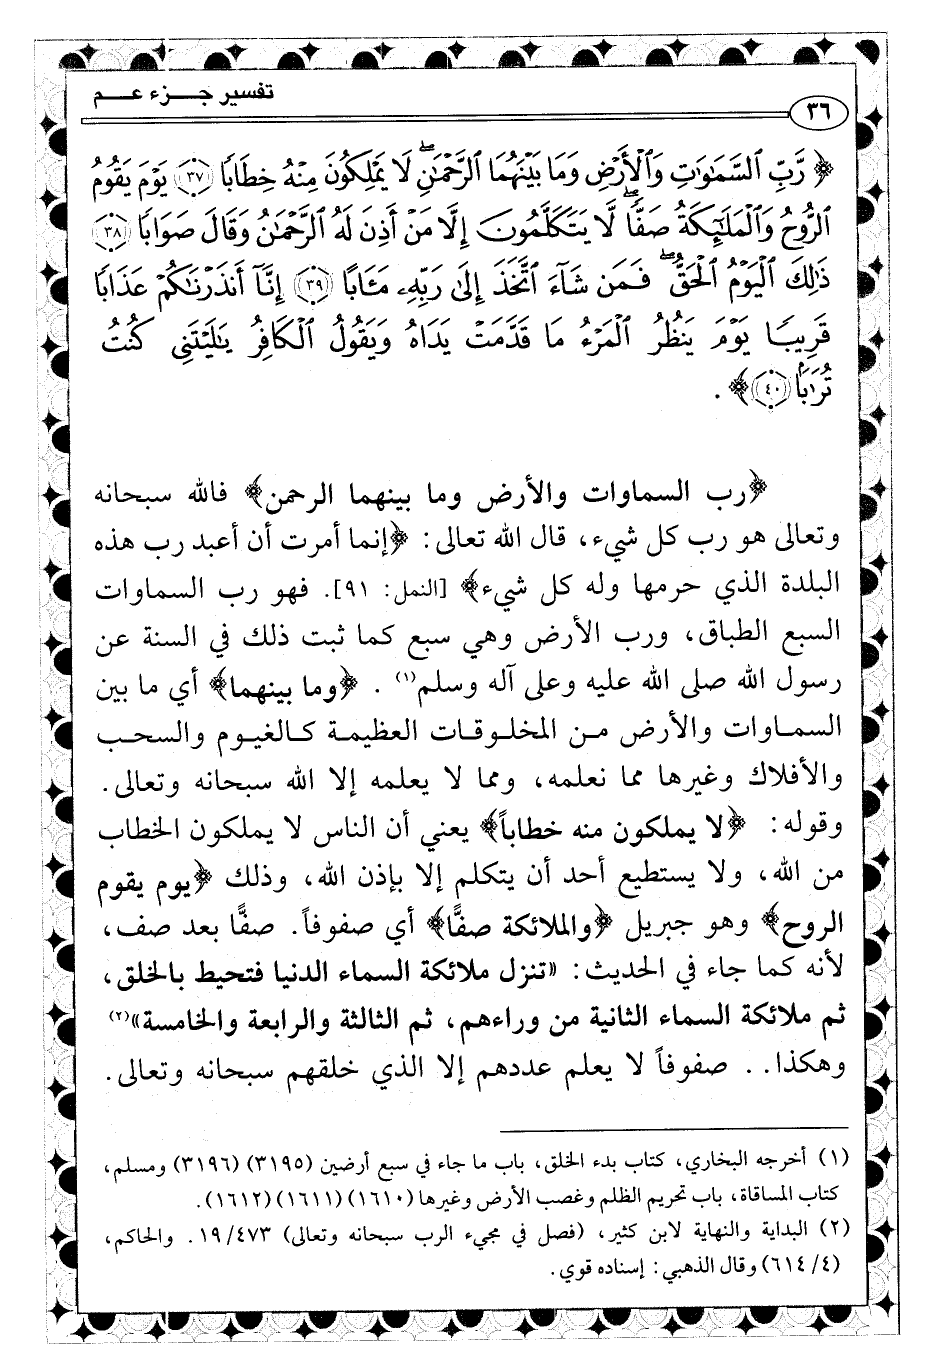 تفسير جـــزء عـــم
٣٦
﴿ رَّبِّ ٱلسَّمَٰوَٰتِ وَٱلْأَرْضِ وَمَا بَيْنَهُمَا ٱلرَّحْمَٰنِۖ لَا يَمْلِكُونَ مِنْهُ خِطَابًا ٣٧ يَوْمَ يَقُومُ
ٱلرُّوحُ وَٱلْمَلَٰٓئِكَةُ صَفًّاۖ لَّا يَتَكَلَّمُونَ إِلَّا مَنْ أَذِنَ لَهُ ٱلرَّحْمَٰنُ وَقَالَ صَوَابًا ٣٨
ذَٰلِكَ ٱلْيَوْمُ ٱلْحَقُّۖ فَمَن شَآءَ ٱتَّخَذَ إِلَىٰ رَبِّهِۦ مَـَٔابًا ٣٩ إِنَّآ أَنذَرْنَٰكُمْ عَذَابًا
قَرِيبًا يَوْمَ يَنظُرُ ٱلْمَرْءُ مَا قَدَّمَتْ يَدَاهُ وَيَقُولُ ٱلْكَافِرُ يَٰلَيْتَنِى كُنتُ
تُرَٰبًۢا ٤٠ ﴾ .
﴿رب السماوات والأرض وما بينهما الرحمن﴾ فالله سبحانه
وتعالى هو رب كل شيء، قال الله تعالى: ﴿إنما أمرت أن أعبد رب هذه
البلدة الذي حرمها وله كل شيء﴾ [النمل: ٩١]. فهو رب السماوات
السبع الطباق، ورب الأرض وهي سبع كما ثبت ذلك في السنة عن
رسول الله صلى الله عليه وعلى آله وسلم(١) . ﴿وما بينهما﴾ أي ما بين
السماوات والأرض من المخلوقات العظيمة كالغيوم والسحب
والأفلاك وغيرها مما نعلمه، ومما لا يعلمه إلا الله سبحانه وتعالى.
وقوله: ﴿لا يملكون منه خطاباً﴾ يعني أن الناس لا يملكون الخطاب
من الله، ولا يستطيع أحد أن يتكلم إلا بإذن الله، وذلك ﴿يوم يقوم
الروح﴾ وهو جبريل ﴿والملائكة صفًّا﴾ أي صفوفاً. صفًّا بعد صف،
لأنه كما جاء في الحديث: «تنزل ملائكة السماء الدنيا فتحيط بالخلق،
ثم ملائكة السماء الثانية من وراءهم، ثم الثالثة والرابعة والخامسة»(٢)
وهكذا.. صفوفاً لا يعلم عددهم إلا الذي خلقهم سبحانه وتعالى.
(١) أخرجه البخاري، كتاب بدء الخلق، باب ما جاء في سبع أرضين (٣١٩٥) (٣١٩٦) ومسلم،
كتاب المساقاة، باب تحريم الظلم وغصب الأرض وغيرها (١٦١٠) (١٦١١) (١٦١٢).
(٢) البداية والنهاية لابن كثير، (فصل في مجيء الرب سبحانه وتعالى) ١٩/٤٧٣. والحاكم،
(٤/ ٦١٤) وقال الذهبي: إسناده قوي.